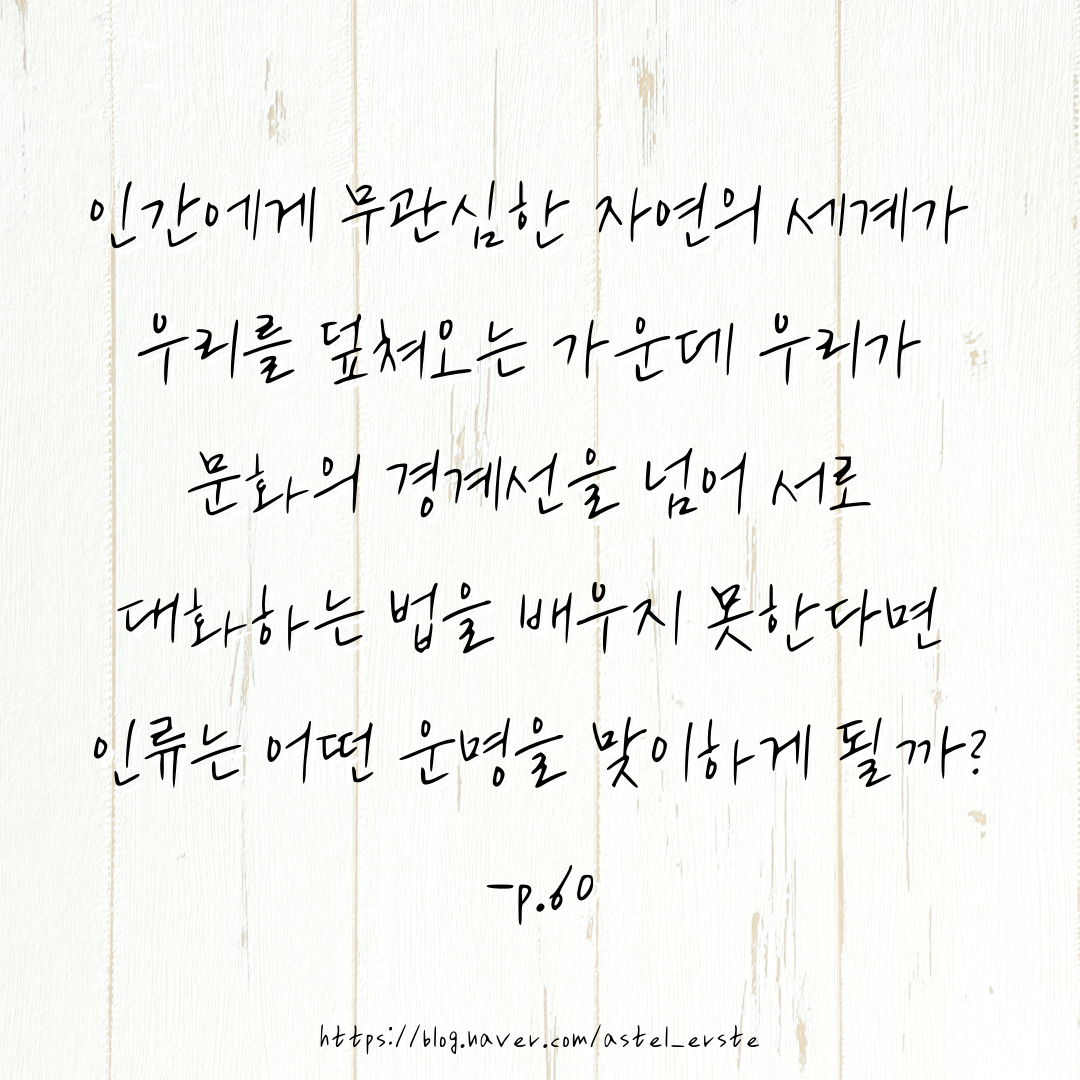 인간에게 무관심한 자연의 세계가
우리를 덮쳐오는 가운데 우리가
문화의 경계선을 넘어 서로
대화하는 법을 배우지 못한다면
인류는 어떤 운명을 맞이하게 될까?
-p.60
https://blog.naver.com/astel_erste